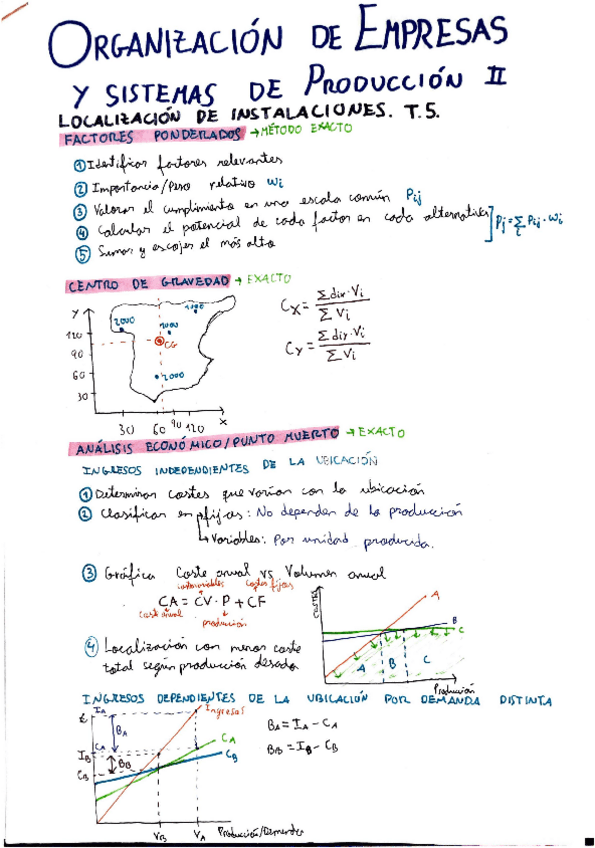 ORGANIZACIÓN DE EMPRESAS
Y SISTEMAS DE PRODUCCIÓN II
LOCALIZACIÓN DE INSTALACIONES. T.5.
FACTORES PONDERADOS → MÉTODO EXACTO
① Identificar factores relevantes
② Importancia/Peso relativo Wi
③ Valorar el cumplimiento en una escala común Pij
④ Calcular el potencial de cada factor en cada alternativa ] Pj = Σi Pij · Wi
⑤ Sumar y escojer el más alto
CENTRO DE GRAVEDAD → EXACTO
Y
120
90
60
30
2000
1000
CG
2000
30 60 90 120 X
Cx = Σdix·Vi / ΣVi
Cy = Σdiy·Vi / ΣVi
ANÁLISIS ECONÓMICO/PUNTO MUERTO → EXACTO
INGRESOS INDEPENDIENTES DE LA UBICACIÓN
① Determinar costes que varían con la ubicación
② Clasificar en fijas: No dependen de la producción
Variables: Por unidad producida.
③ Gráfica Coste anual vs Volumen anual
costes fijos
CA = CV · P + CF
coste anual
producción
④ Localización con menor coste
total según producción deseada
COSTES
A
B
C
A B C
Producción
INGRESOS DEPENDIENTES DE LA UBICACIÓN POR DEMANDA DISTINTA
€
IA
BA
CA
IB
BB
CB
Ingresos
CA
CB
VB VA Producción/Demanda
BA = IA - CA
BB = IB - CB